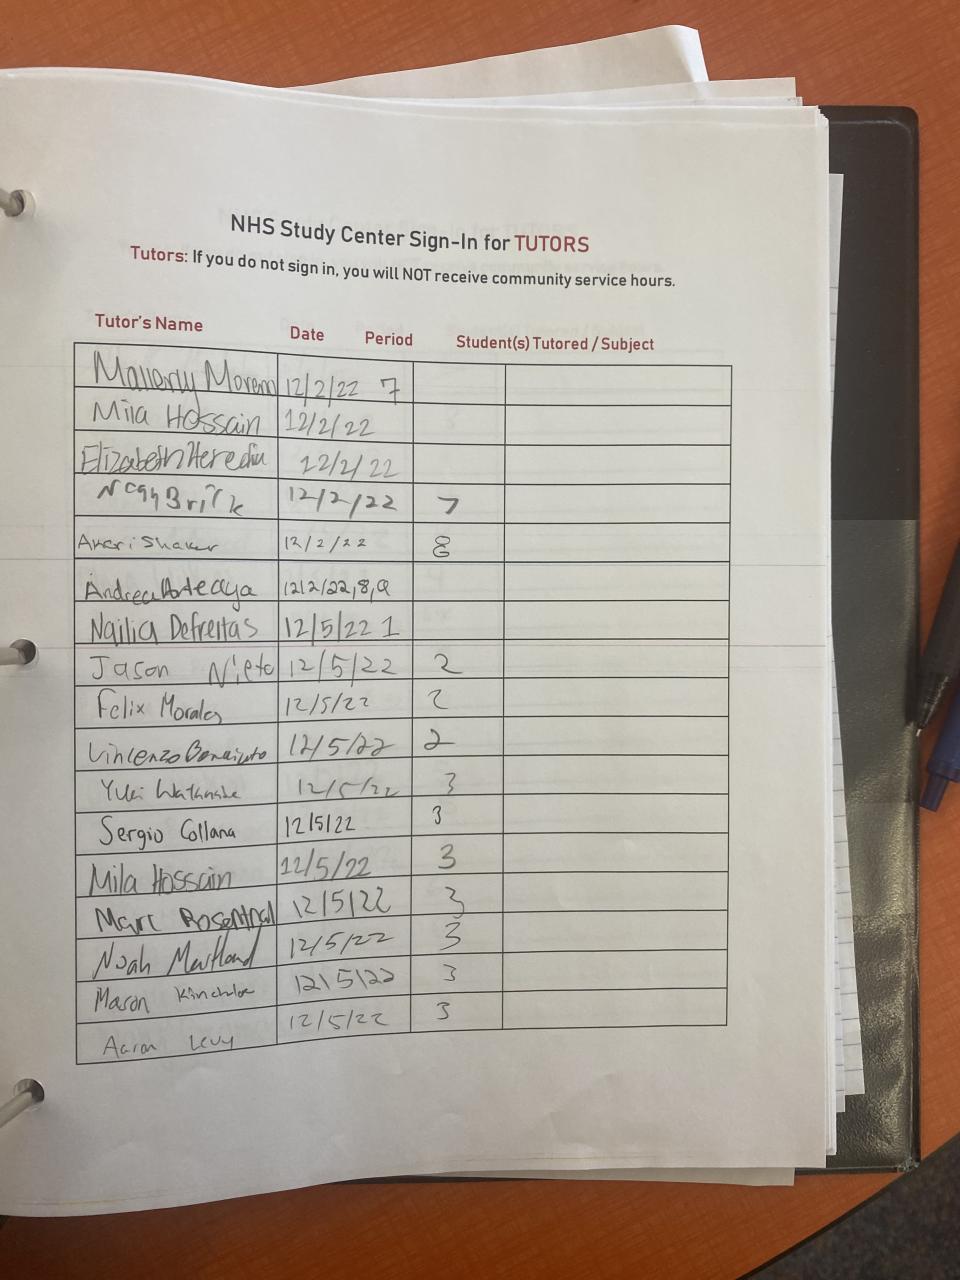 NHS Study Center Sign-In for TUTORS
Tutors: If you do not sign in, you will NOT receive community service hours.
Tutor's Name Date Period Student(s) Tutored / Subject
12/2/22 7
Mila Hossain 12/2/22
Elizabeth Heredia 12/2/22
12/2/22 7
12/2/22 8
Andrea 12/2/22, 8, 9
Nailia Defreitas 12/5/22 1
Jason Nieto 12/5/22 2
Felix Morales 12/5/22 2
Vincenzo 12/5/22 2
Yuki Watanabe 12/5/22 3
Sergio Collana 12/5/22 3
Mila Hossain 12/5/22 3
Marc Rosenthal 12/5/22 3
Noah Maitland 12/5/22 3
Mason Kincheloe 12/5/22 3
Aaron Levy 12/5/22 3